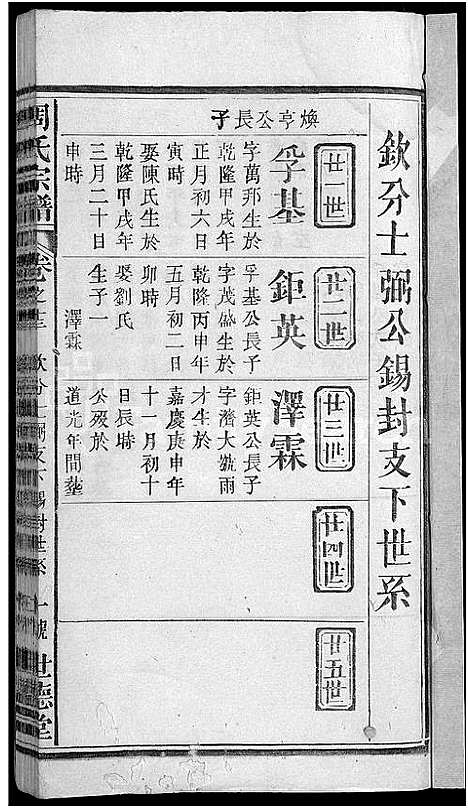 欽分士弼公錫封支下世系
廿一世
廿二世
廿三世
廿四世
廿五世
煥亭公長子
孚基
字萬邦生於
乾隆甲戌年
正月初六日
寅時
娶陳氏生於
乾隆甲戌年
三月二十日
申時
鉅英
孚基公長子
字茂盛生於
乾隆丙申年
五月初二日
卯時
娶劉氏
生子一
澤霖
澤霖
鉅英公長子
字濟大號雨
才生於
嘉慶庚申年
十一月初十
日辰時
公歿於
道光年間塟
周氏宗譜
卷之三
欽分士弼支下錫封世系
一號
世德堂